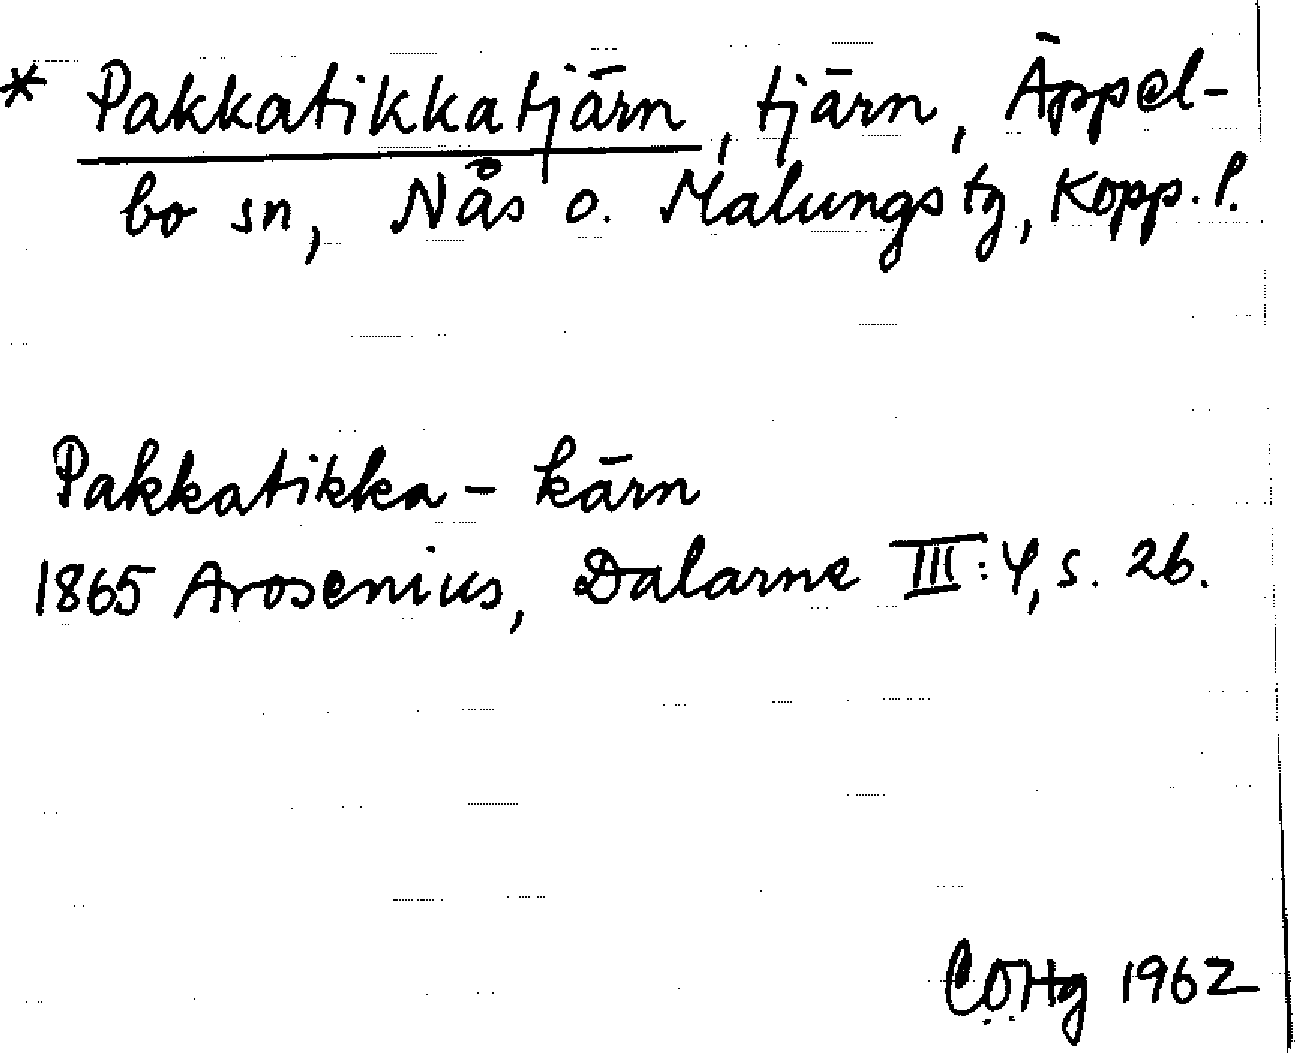 * Pakkatikkatjärn, tjärn, Äppel-
bo sn, Nås o. Malungs tg, Kopp. l.
Pakkatikka - kärn
1865 Arosenius, Dalarne III: 4, s. 26.
1962